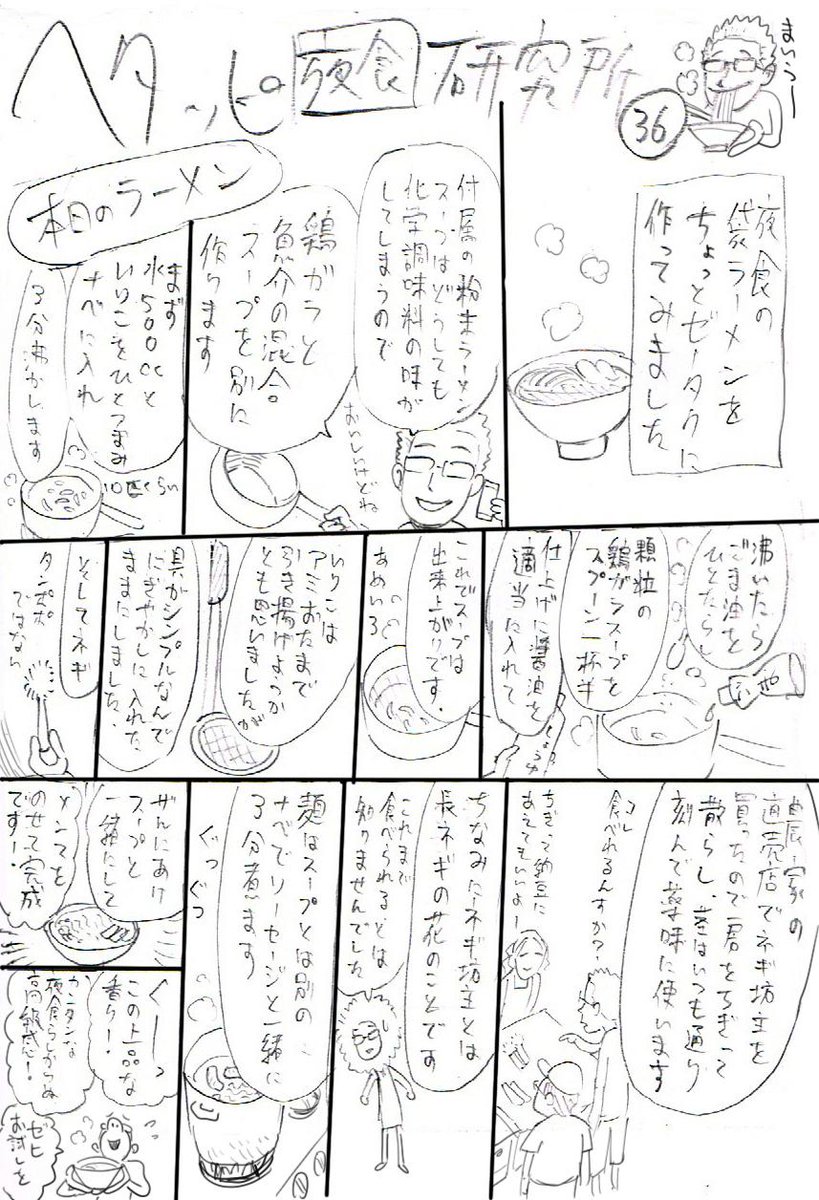 ヘタッピ夜食研究所
36
まいうー
夜食の
袋ラーメンを
ちょっとゼータクに
作ってみました
本日のラーメン
付属の粉末ラーメン
スープはどうしても
化学調味料の味が
してしまうので
おいしいけどね
鶏ガラと
魚介の混合。
スープを別に
作ります
まず
水500ccと
いりこをひとつまみ
ナベに入れ
10匹くらい
3分沸かします
沸いたら
ごま油を
ひとたらし
顆粒の
鶏ガラスープを
スプーン一杯半
仕上げに醤油を
適当に入れて
しょうゆ
これでスープは
出来上がりです。
あめいろ
いりこは
アミおたまで
引き揚げようか
とも思いましたが
具がシンプルなんで
にぎやかしに入れた
ままにしました。
そしてネギ
タンポポ
ではない
農家の
直売店でネギ坊主を
買ったので君をちぎって
散らし、茎はいつも通り
刻んで薬味に使います
コレ
食べれるんすか?
ちぎって納豆に
あえてもいいよー
ちなみにネギ坊主とは
長ネギの花のことです
これまで
食べられるとは
知りませんでした
麺はスープとは別の
ナベでソーセージと一緒に
3分煮ます
ぐつぐつ
ぜんにあけ
スープと
一緒にして
メンマを
のせて完成
ですー!
くーっ
この上品な
香り!
カンタンな
夜食らしからぬ
高級感!
ゼヒ
お試しを